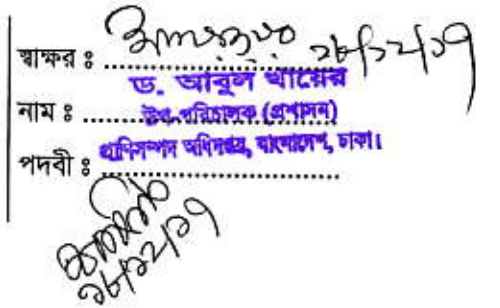 স্বাক্ষর ঃ ২৮/১২/১৭
ড. আবুল খায়ের
নাম ঃ উপ-পরিচালক (প্রশাসন)
পদবী ঃ প্রাণিসম্পদ অধিদপ্তর, বাংলাদেশ, ঢাকা।
২৮/১২/১৭